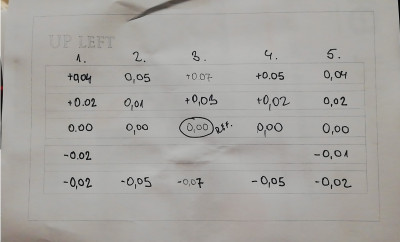 UP LEFT
1. 2. 3. 4. 5.
+0,04 0,05 +0.07 +0.05 0,04
+0.02 0,01 +0,03 +0,02 0,02
0.00 0,00 0,00 ref. 0,00 0,00
-0.02 -0,01
-0,02 -0,05 -0,07 -0,05 -0,02